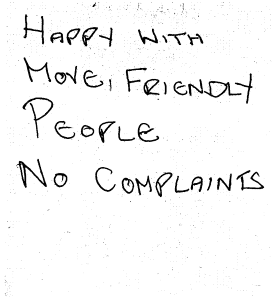 HAPPY WITH
MOVE, FRIENDLY
PEOPLE
NO COMPLAINTS